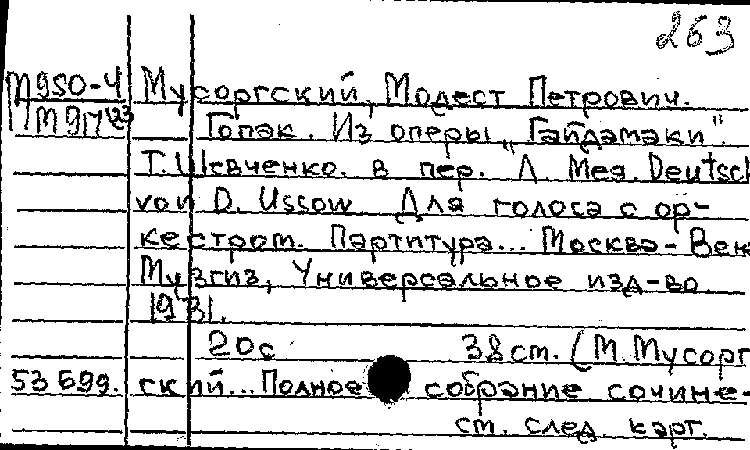 263
М950-4 Мусоргский, Модест Петрович.
М917 Гопак. Из оперы „Гайдамаки"
Т. Шевченко. в пер. Л. Мея. Deutsch
von D. Ussow Для голоса с ор-
кестром. Партитура... Москва-Вен
Музгиз, Универсальное изд-во
1931.
20с 38 ст. (М. Мусорг
53699. ский... Полное собрание сочине-
ст. след карт.